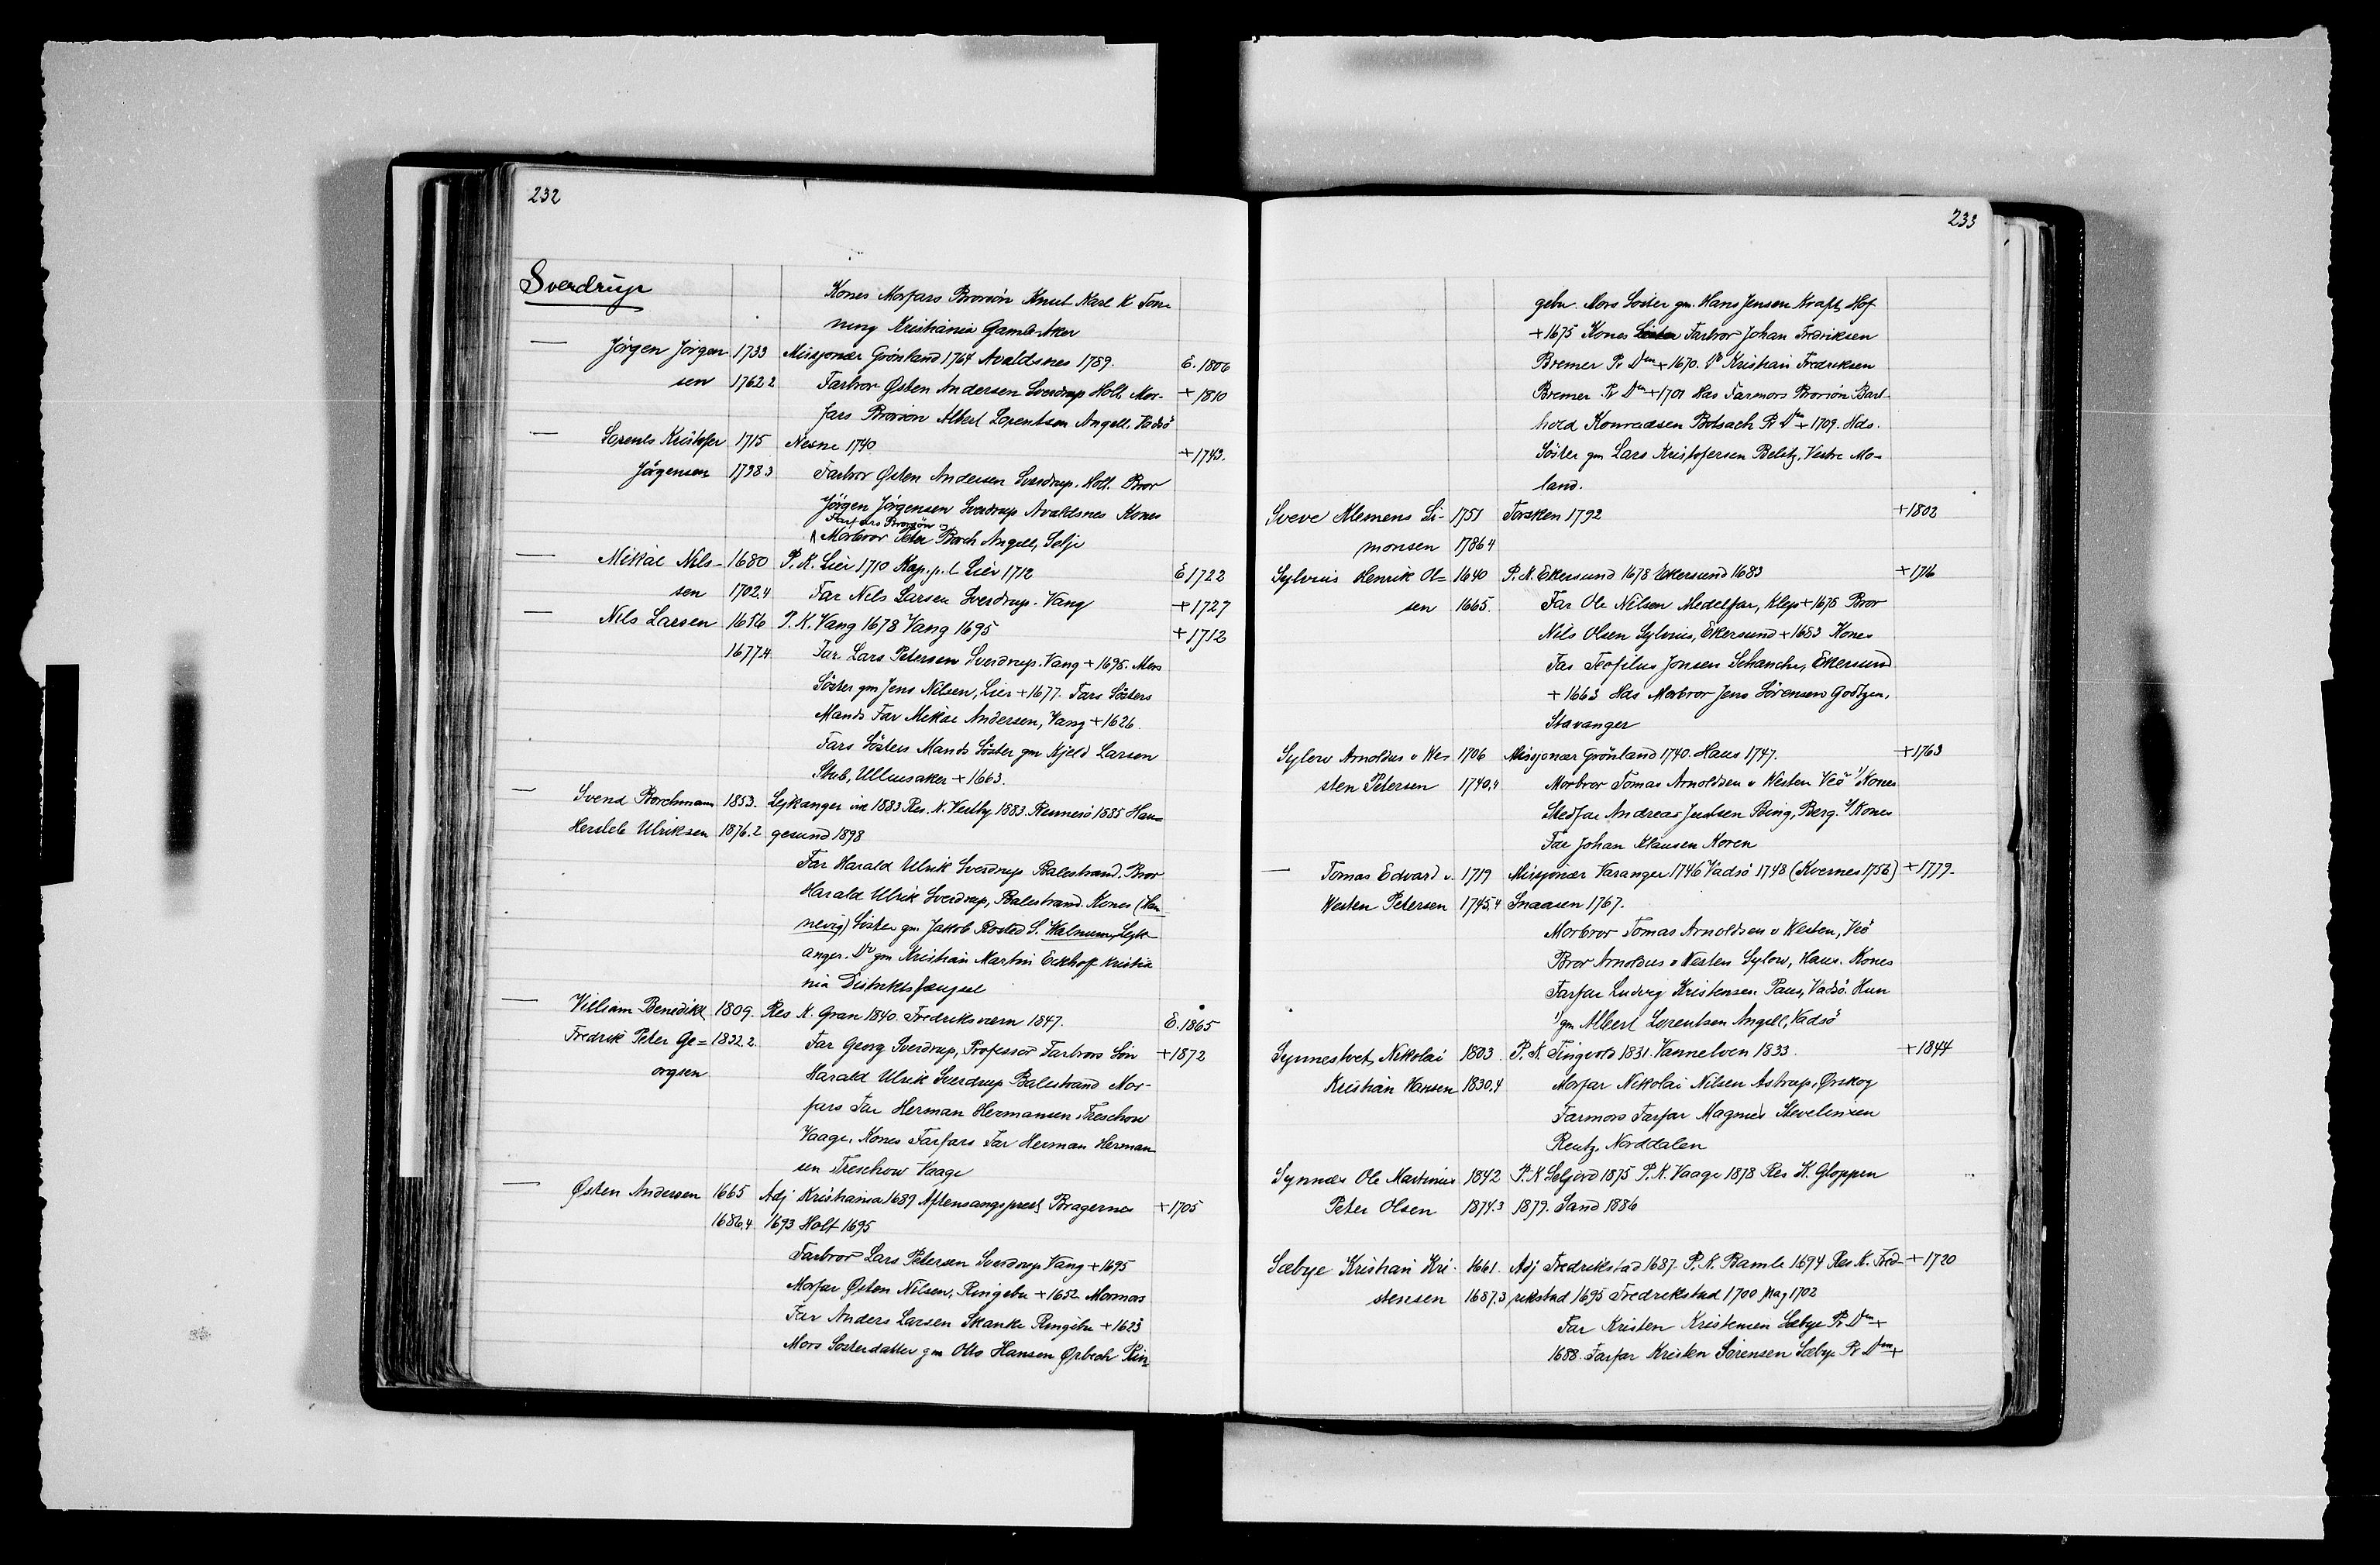 232
Sverdrup
Kones Morfars Brorsön Knut Karl K Ton-
ning Kristiania Gamle Aker
— Jörgen Jörgen 1733 Missjonær Grönland 1764 Avaldsnes 1789. E. 1806
sen 1762.2 Farbror Østen Andersen Sverdrup Holt, Mor- + 1810
fars Brorsön Albert Lorentsen Angell. Vadsö
— Lorents Kristofer 1715 Nesne 1740 + 1743.
Jörgensen 1738.3 Farbror Østen Andersen Sverdrup. Holt. Bror
Jörgen Jörgensen Sverdrup Avaldsnes Kones
Farfars Brorsön
Morbror Peter Borch Angell, Selje
— Mikäl Nils- 1680 P. K. Lier 1710 Kap. p. l. Lier 1712 E 1722
sen 1702.4 Far Nils Larsen Sverdrup. Vang + 1727
— Nils Larsen 1656 P. K. Vang 1678 Vang 1695 + 1712
1677.4 Far Lars Petersen Sverdrup. Vang + 1695. Mors
Söster gm Jens Nilsen, Lier + 1677. Fars Sösters
Mands Far Mikäl Andersen, Vang + 1626.
Fars Sösters Mands Söster gm Kjeld Larsen
Stub, Ullensaker + 1663.
— Svend Borchmann 1853. Leikanger 1883 Res. K. Vestby 1883. Rennesö 1885 Hau=
Hersleb Ulriksen 1876.2 gesund 1898
Far Harald Ulrik Sverdrup Balestrand. Bror
Harald Ulrik Sverdrup, Balestrand. Kones (Han
nevig) Söster gm Jakob Rosted S. Walnum, Leik-
anger. Do gm Kristian Martin Eckhoff Kristia
nia Distriktsfængsel
— William Benedikt 1809. Res K. Gran 1840. Fredriksværn 1847. E. 1865
Fredrik Peter Ge= 1832.2. Far Georg Sverdrup, Professor Farbrors Sön + 1872
orgsen Harald Ulrik Sverdrup Balestrand Mor-
fars Far Herman Hermansen Treschow
Vaage, Kones Farfars Far Herman Herman
sen Treschow Vaage
— Østen Andersen 1665 Adj Kristiania 1689 Aftensangsprest Bragernes + 1705
1686.4 1693 Holt 1695
Farbror Lars Petersen Sverdrup Vang + 1695
Morfar Østen Nilsen, Ringebu + 1652 Mormors
Far Anders Larsen Skanke Ringebu + 1623
Mors Sösterdatter gm Otto Hansen Ørbech Rin=
233
gebu. Mors Söster gm. Hans Jensen Kraft, Hof
+ 1675 Kones Farbror Johan Fredriksen
Bremer Pr Dm + 1670. Do Kristian Fredriksen
Bremer Pr Dm + 1701 Hds Farmors Brorsön Bart-
hold Konradsen Botsach Pr Dm + 1709. Hds.
Söster gm Lars Kristofersen Beletz, Vestre Mo-
land.
Sveve Klemens Si- 1751 Torsken 1792 + 1802
monsen 1786.4
Sylvius Henrik Ol= 1640 P. K. Ekersund 1678 Ekersund 1683 + 1716
sen 1665. Far Ole Nilsen Medelfar, Klep + 1676 Bror
Nils Olsen Sylvius, Ekersund + 1683 Kones
Far Teofilus Jonsen Schanche, Ekersund
+ 1663 Hds Morbror Jens Sörensen Godtzen,
Stavanger
Sylow Arnoldus v Wes 1706 Missjonær Grönland 1740. Haus 1747. + 1763
sten Petersen 1740.4 Morbror Tomas Arnoldsen v Westen Veö 1/Kones
Stedfar Andreas Justsen Bing, Berg. 2/Kones
Far Johan Klausen Koren
— Tomas Edvard v. 1719 Missjonær Varanger 1746 Vadsö 1748 (Kvernes 1756) + 1779.
Westen Petersen 1745.4 Snaasen 1767.
Morbror Tomas Arnoldsen v Westen, Veö
Bror Arnoldus v Westen Sylow, Haus. Kones
Farfar Ludvig Kristensen Paus, Vadsö. Hun
1/gm Albert Lorentsen Angell, Vadsö
Synnestvet, Nikolai 1803 P. K. Tingvold 1831. Vannelven 1833. + 1844
Kristian Hansen 1830.4 Morfar Nikolai Nilsen Astrup, Ørskog
Farmors Farfar Magnus Stevelinsen
Reutz, Norddalen
Synnæs Ole Martinus 1842 P. K Seljord 1875 P. K. Vaage 1878 Res K. Gloppen
Peter Olsen 1874.3 1879. Sand 1886
Sæbye Kristian Kri- 1661. Adj Fredrikstad 1687. P. K. Bamle 1694 Res K. Fred- + 1720
stensen 1687.3 rikstad 1695 Fredrikstad 1700 Mag 1702
Far Kristen Kristensen Sæbye Pr Dm +
1688. Farfar Kristen Sörensen Sæbye Pr Dm +